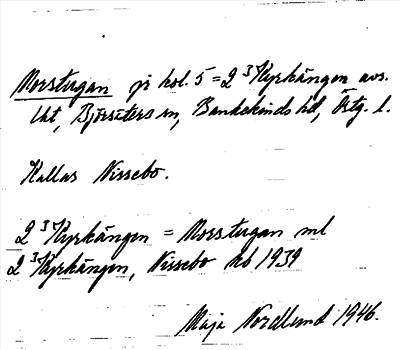 Morstugan på kol. 5 = 2 3 Kyrkängen avs.
lht, Björsäters sn, Bankekinds hd, Östg. l.
Kallas Nissebo.
2 3 Kyrkängen = Morstugan ml
2 3 Kyrkängen, Nissebo kb 1939
Maja Nordlund 1946.